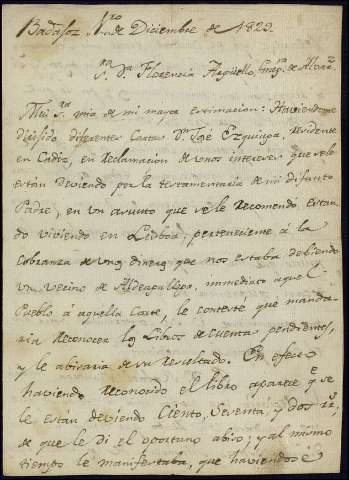 Badajoz, 1.ro de Diciembre de 1829.
S.ra D.a Florencia Arguello,
Mui S.ra mia de mi mayor estimacion: Haviendome
dirijido diferentes Cartas D.n José Ezquiaga, residente
en Cadiz, en reclamacion de unos intereses que sele
están deviendo por la testamentaria de mi difunto
Padre, en un asunto que se le recomendó estan
do viviendo en Lisboa, perteneciente á la
Cobranza de unos dineros que nos estaba debiendo
un vecino de Aldeagallega, immediato aquel
Pueblo á aquella Corte, le contesté que manda
ria reconocer los Libros de cuentas pendientes,
y le abisaria de su resultado. En efecto
haviendo reconocido el libro aparece q.e se
le están deviendo Ciento, Sesenta, y dos r.s
de que le di el oportuno abiso; y al mismo
tiempo le manifestaba, que haviendose